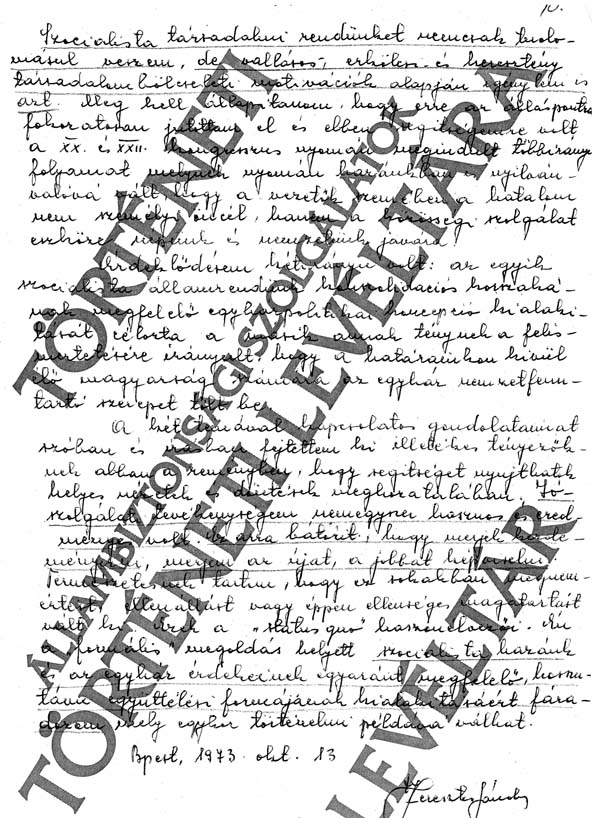 10.
Szocialista társadalmi rendünket nemcsak tudo-
másul veszem, de vallásos, erkölcsi és keresztény
társadalombölcseleti motivációk alapján igénylem is
azt. Meg kell állapítanom, hogy erre az álláspontra
fokozatosan jutottam el és ebben segítségemre volt
a XX. és XXII. kongresszus nyomán megindult többirányú
folyamat melynek nyomán hazánkban is nyilván-
valóvá vált, hogy a vezetők szemében a hatalom
nem személyi öncél, hanem a közösségi szolgálat
eszköze népünk és nemzetünk javára.
Érdeklődésem kétirányú volt: az egyik
szocialista államrendünk konszolidációs korszaká-
nak megfelelő egyházpolitikai koncepció kialakí-
tását célozta a másik annak ténynek a felis-
mertetésére irányult, hogy a határainkon kívül
élő magyarság számára az egyház nemzetfenn-
tartó szerepet tölt be.
A két témával kapcsolatos gondolataimat
szóban és írásban fejtettem ki illetékes tényezők-
nek abban a reményben, hogy segítséget nyújthatok
helyes nézetek és döntések meghozatalában. Jó-
szolgálati tevékenységem nemegyszer hasznos és ered-
ményes volt s ez arra bátorít, hogy merjek kezde-
ményezni, merjem az újat, a jobbat képviselni.
Természetesnek tartom, hogy ez sokakban megnem-
értést, ellenállást vagy éppen ellenséges magatartást
vált ki. Ezek a „status quo” haszonélvezői. Én
a „formális” megoldás helyett szocialista hazánk
és az egyház érdekeinek egyaránt megfelelő, hosszu-
távú együttélési formájának kialakításáért fára-
dozom, mely egykor történelmi példává válhat.
Bpest, 1973. okt. 13
ÁLLAMBIZTONSÁGI SZOLGÁLATOK
TÖRTÉNETI LEVÉLTÁRA
TÖRTÉNETI LEVÉLTÁR